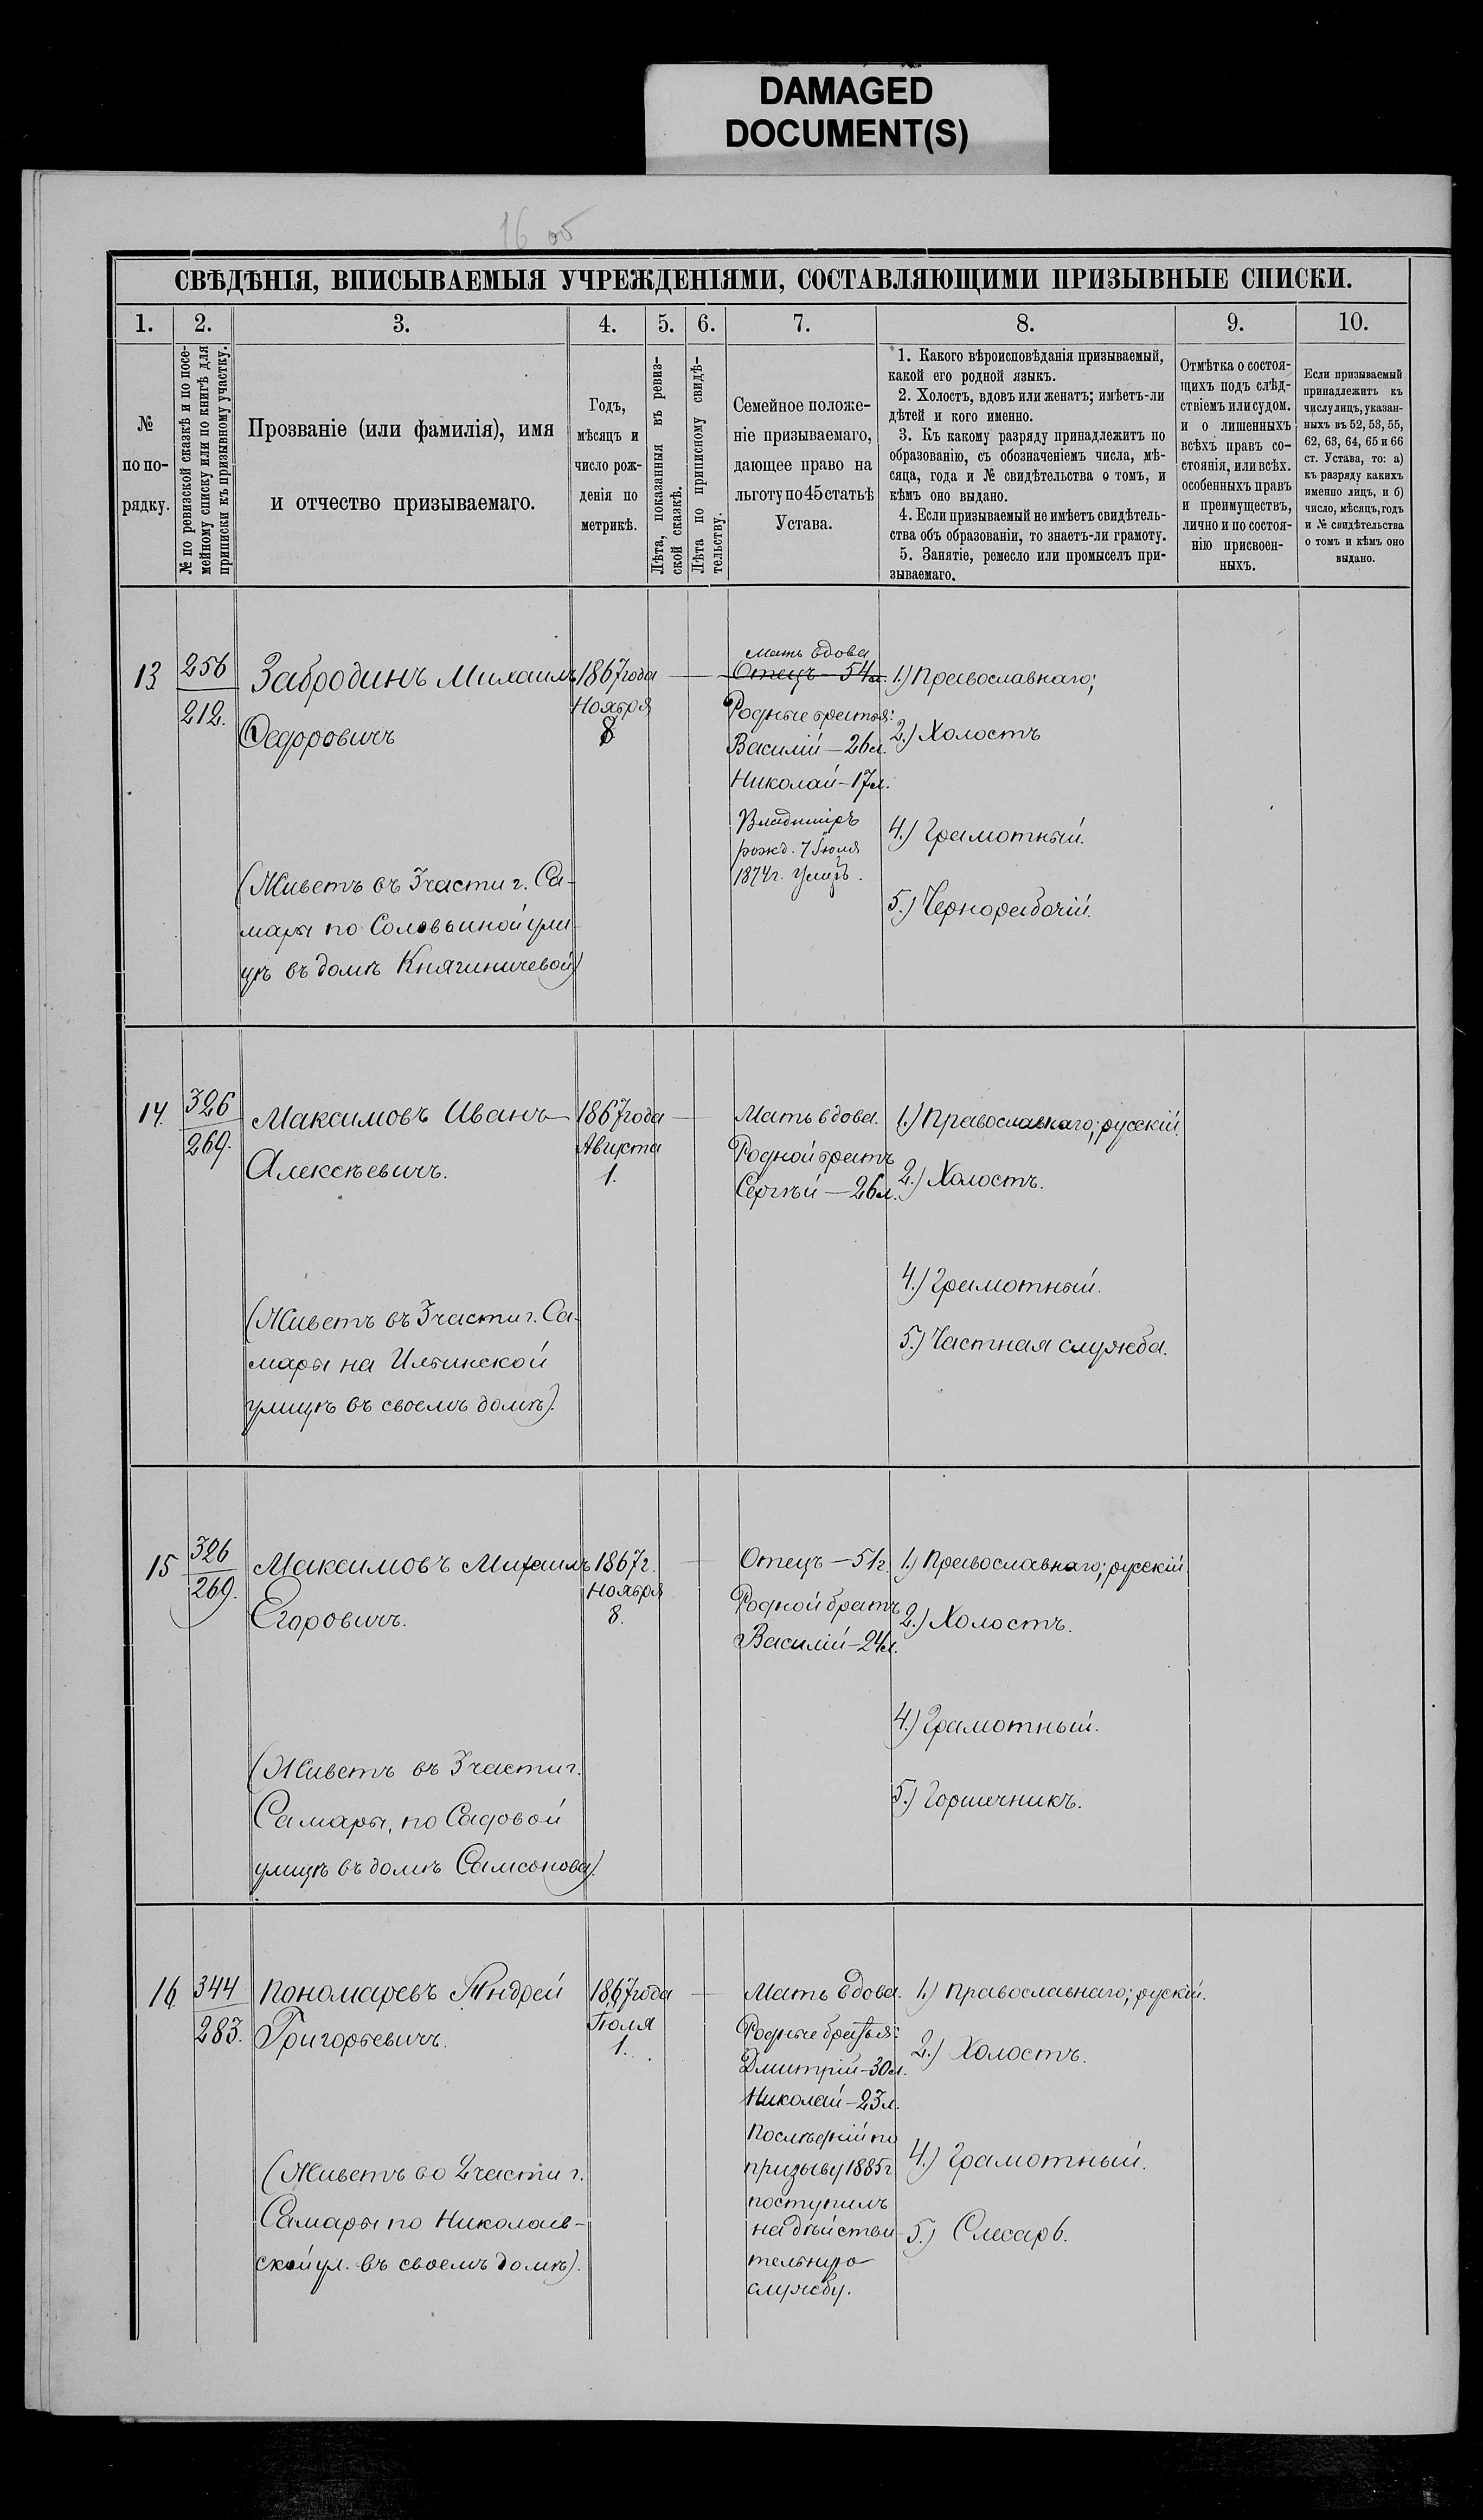 DAMAGED
DOCUMENT(S)
16 об
СВѢДѢНІЯ, ВПИСЫВАЕМЫЯ УЧРЕЖДЕНІЯМИ, СОСТАВЛЯЮЩИМИ ПРИЗЫВНЫЕ СПИСКИ.
1. 2. 3. 4. 5. 6. 7. 8. 9. 10.
№
по по-
рядку.
№ по ревизской сказкѣ и по посе-
мейному списку или по книгѣ для
приписки къ призывному участку.
Прозваніе (или фамилія), имя
и отчество призываемаго.
Годъ,
мѣсяцъ и
число рож-
денія по
метрикѣ.
Лѣта, показанныя въ ревиз-
ской сказкѣ.
Лѣта по приписному свидѣ-
тельству.
Семейное положе-
ніе призываемаго,
дающее право на
льготу по 45 статьѣ
Устава.
1. Какого вѣроисповѣданія призываемый,
какой его родной языкъ.
2. Холостъ, вдовъ или женатъ; имѣетъ-ли
дѣтей и кого именно.
3. Къ какому разряду принадлежитъ по
образованію, съ обозначеніемъ числа, мѣ-
сяца, года и № свидѣтельства о томъ, и
кѣмъ оно выдано.
4. Если призываемый не имѣетъ свидѣтель-
ства объ образованіи, то знаетъ-ли грамоту.
5. Занятіе, ремесло или промыселъ при-
зываемаго.
Отмѣтка о состоя-
щихъ подъ слѣд-
ствіемъ или судомъ.
и о лишенныхъ
всѣхъ правъ со-
стоянія, или всѣх.
особенныхъ правъ
и преимуществъ,
лично и по состоя-
нію присвоен-
ныхъ.
Если призываемый
принадлежитъ къ
числу лицъ, указан-
ныхъ въ 52, 53, 55,
62, 63, 64, 65 и 66
ст. Устава, то: а)
къ разряду какихъ
именно лицъ, и б)
число, мѣсяцъ, годъ
и № свидѣтельства
о томъ и кѣмъ оно
выдано.
13
256
212.
Забродинъ Михаилъ
Федоровичъ
(Живетъ въ 3 части г. Са-
мары по Соловьиной ули-
цѣ въ домѣ Княгиничевой)
1867 года
Ноября
8
Мать вдова
Отецъ — 54 л.
Родные братья:
Василій — 26 л.
Николай — 17 л.
Владиміръ
рожд. 7 Іюля
1874 г. умеръ.
1.) Православнаго;
2.) Холостъ
4.) Грамотный.
5.) Чернорабочій.
14.
326
269.
Максимовъ Иванъ
Алексѣевичъ.
(Живетъ въ 3 части г. Са-
мары на Ильинской
улицѣ въ своемъ домѣ).
1867 года
Августа
1.
Мать вдова.
Родной братъ
Сергѣй — 26 л.
1.) Православнаго; русскій.
2.) Холостъ.
4.) Грамотный.
5.) Частная служба.
15
326
269.
Максимовъ Михаилъ
Егоровичъ.
(Живетъ въ 3 части г.
Самары, по Садовой
улицѣ въ домѣ Самсонова).
1867 г.
Ноября
8.
Отецъ — 51 г.
Родной братъ
Василій — 24 л.
1.) Православнаго; русскій.
2.) Холостъ.
4.) Грамотный.
5.) Горшечникъ.
16
344
283.
Пономаревъ Андрей
Григорьевичъ.
(Живетъ во 2 части г.
Самары по Николаев-
ской ул. въ своемъ домѣ).
1867 года
Іюля
1.
Мать вдова.
Родные братья:
Дмитрій — 30 л.
Николай — 23 л.
Послѣдній по
призыву 1885 г.
поступилъ
на дѣйстви-
тельную
службу.
1.) Православнаго; рускій.
2.) Холостъ.
4.) Грамотный.
5.) Слесарь.